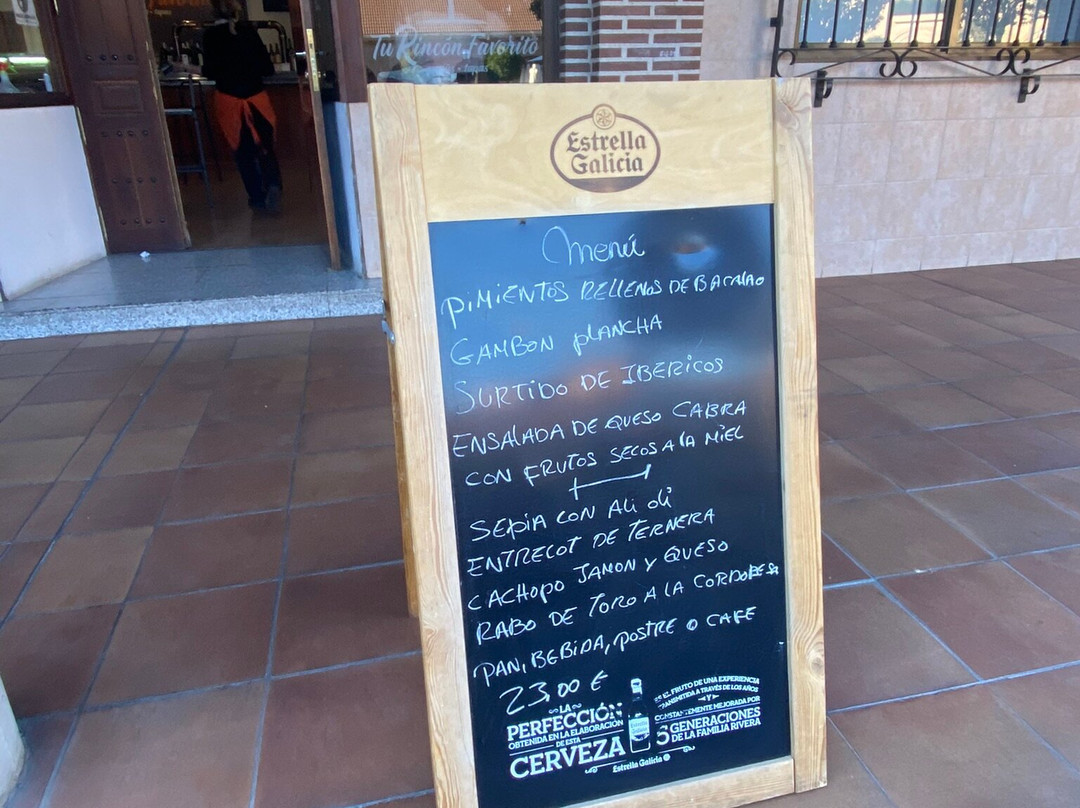 Tu Rincón Favorito
Estrella
Galicia
Menú
PIMIENTOS RELLENOS DE BACALAO
GAMBON PLANCHA
SURTIDO DE IBERICOS
ENSALADA DE QUESO CABRA
CON FRUTOS SECOS A LA MIEL
SEPIA CON ALI OLI
ENTRECOT DE TERNERA
CACHOPO JAMON Y QUESO
RABO DE TORO A LA CORDOBESA
PAN, BEBIDA, POSTRE O CAFE
23,00 €
LA
PERFECCIÓN
OBTENIDA EN LA ELABORACIÓN
DE ESTA
CERVEZA
ES EL FRUTO DE UNA EXPERIENCIA
TRANSMITIDA A TRAVÉS DE LOS AÑOS
Y
CONSTANTEMENTE MEJORADA POR
5 GENERACIONES
DE LA FAMILIA RIVERA
Estrella Galicia